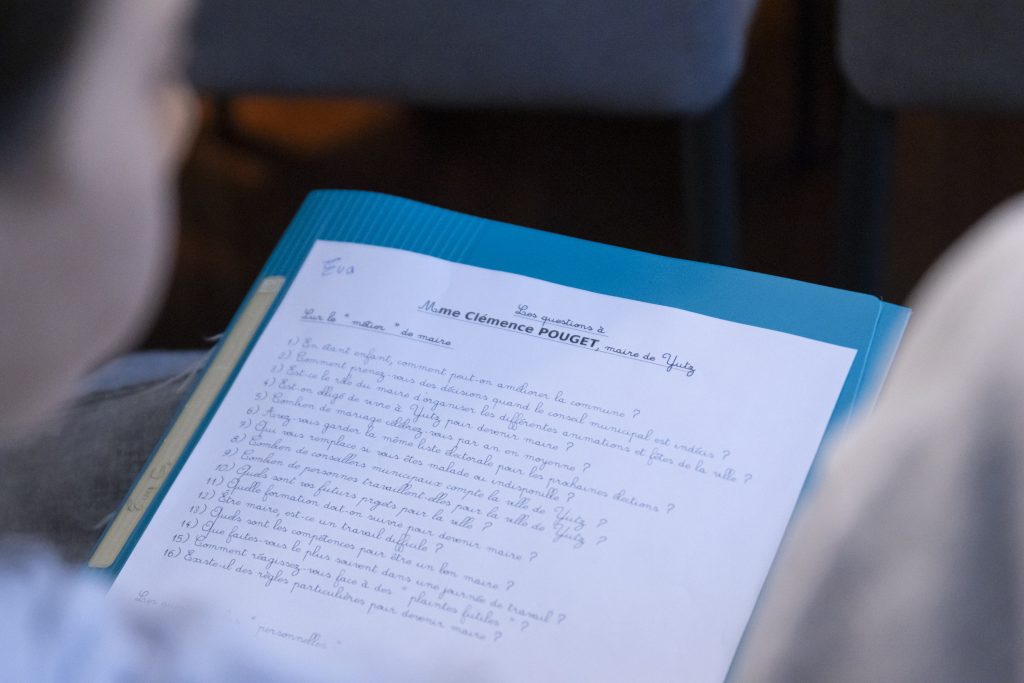 Eva
Les questions à
Mme Clémence POUGET, maire de Yutz
Sur le "métier" de maire
1) En étant enfant, comment peut-on améliorer la commune ?
2) Comment prenez-vous des décisions quand le conseil municipal est indécis ?
3) Est-ce le rôle du maire d'organiser les différentes animations et fêtes de la ville ?
4) Est-on obligé de vivre à Yutz pour devenir maire ?
5) Combien de mariage célébrez-vous par an en moyenne ?
6) Avez-vous garder la même liste électorale pour les prochaines élections ?
7) Qui vous remplace si vous êtes malade ou indisponible ?
8) Combien de conseillers municipaux compte la ville de Yutz ?
9) Combien de personnes travaillent-elles pour la ville de Yutz ?
10) Quels sont vos futurs projets pour la ville ?
11) Quelle formation doit-on suivre pour devenir maire ?
12) Être maire, est-ce un travail difficile ?
13) Quels sont les compétences pour être un bon maire ?
14) Que faites-vous le plus souvent dans une journée de travail ?
15) Comment réagissez-vous face à des "plaintes futiles" ?
16) Existe-il des règles particulières pour devenir maire ?
Les "personnelles"